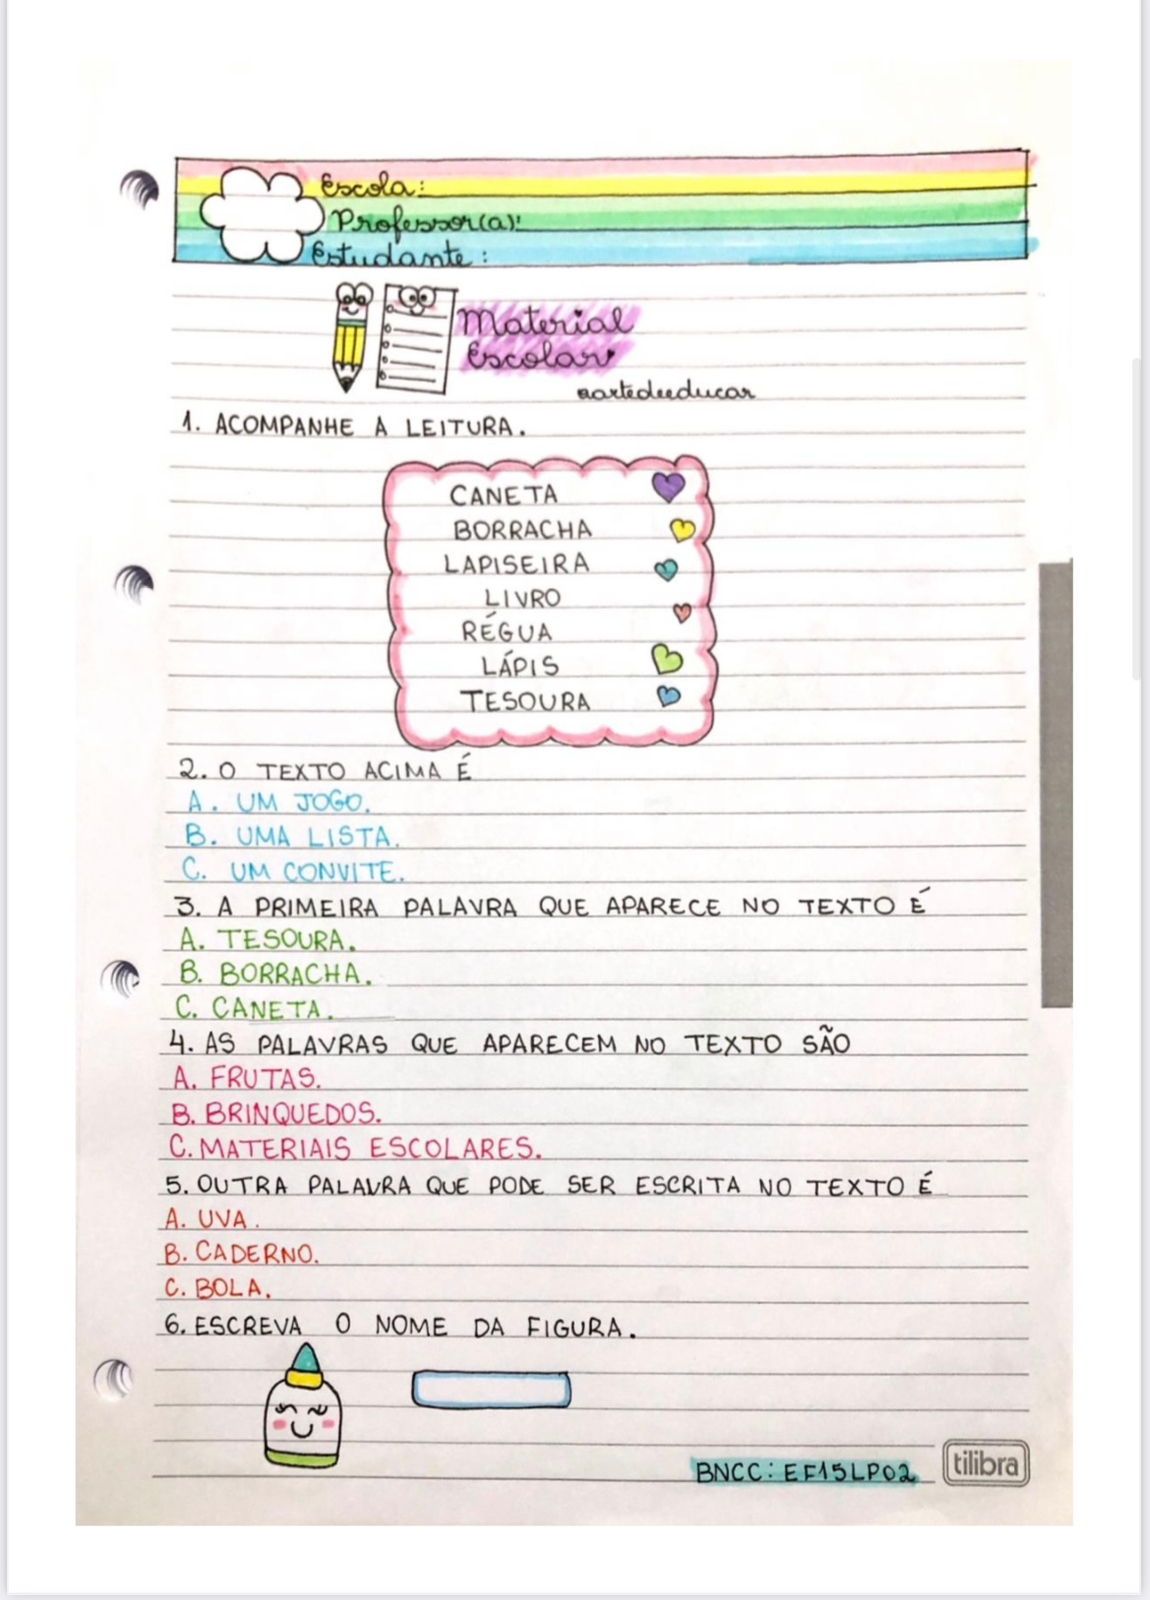 Escola:
Professor(a):
Estudante:
Material
Escolar
aartedeeducar
1. ACOMPANHE A LEITURA.
CANETA
BORRACHA
LAPISEIRA
LIVRO
RÉGUA
LÁPIS
TESOURA
2. O TEXTO ACIMA É
A. UM JOGO.
B. UMA LISTA.
C. UM CONVITE.
3. A PRIMEIRA PALAVRA QUE APARECE NO TEXTO É
A. TESOURA.
B. BORRACHA.
C. CANETA.
4. AS PALAVRAS QUE APARECEM NO TEXTO SÃO
A. FRUTAS.
B. BRINQUEDOS.
C. MATERIAIS ESCOLARES.
5. OUTRA PALAVRA QUE PODE SER ESCRITA NO TEXTO É
A. UVA.
B. CADERNO.
C. BOLA.
6. ESCREVA O NOME DA FIGURA.
BNCC: EF15LP02
tilibra